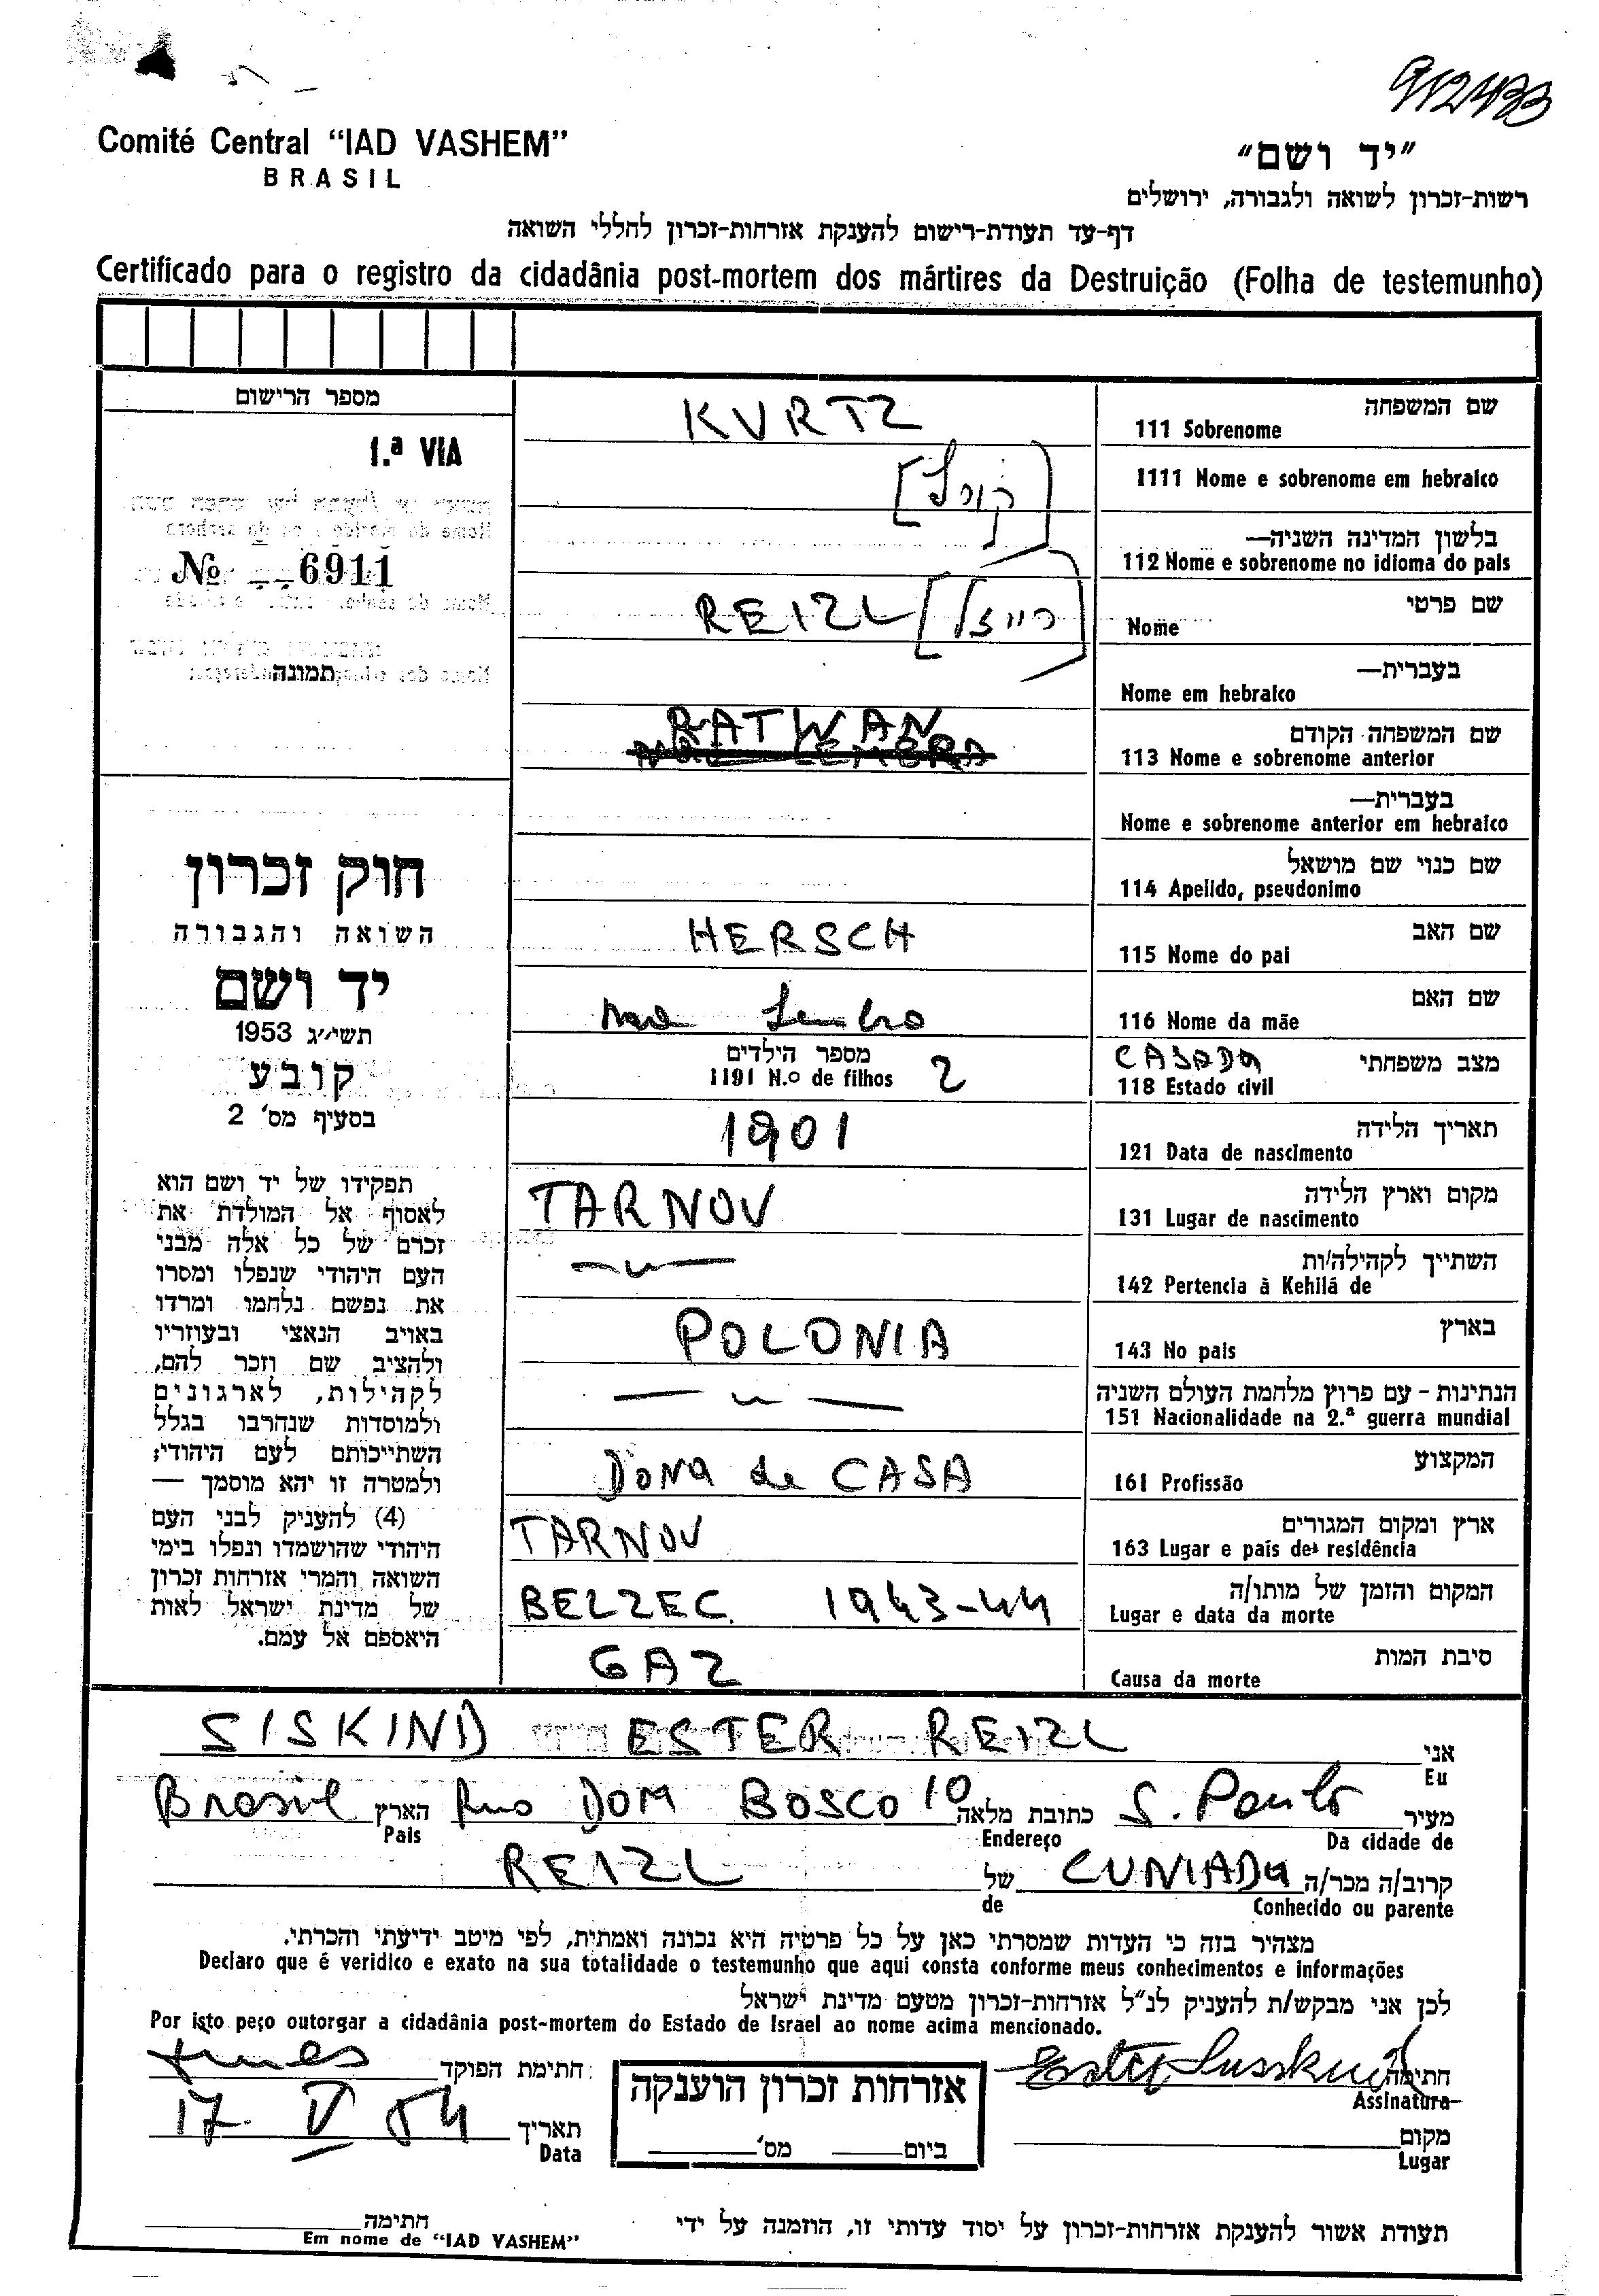 912433
Comité Central “IAD VASHEM”
BRASIL
“יד ושם”
רשות-זכרון לשואה ולגבורה, ירושלים
דף-עד תעודת-רישום להענקת אזרחות-זכרון לחללי השואה
Certificado para o registro da cidadânia post-mortem dos mártires da Destruição (Folha de testemunho)
מספר הרישום
1.ª VIA
№ 6911
תמונה
חוק זכרון
השואה והגבורה
יד ושם
תשי״ג 1953
קובע
בסעיף מס׳ 2
תפקידו של יד ושם הוא
לאסוף אל המולדת את
זכרם של כל אלה מבני
העם היהודי שנפלו ומסרו
את נפשם נלחמו ומרדו
באויב הנאצי ובעוזריו
ולהציב שם וזכר להם,
לקהילות, לארגונים
ולמוסדות שנחרבו בגלל
השתייכותם לעם היהודי;
ולמטרה זו יהא מוסמך —
(4) להעניק לבני העם
היהודי שהושמדו ונפלו בימי
השואה והמרי אזרחות זכרון
של מדינת ישראל לאות
היאספם אל עמם.
שם המשפחה
111 Sobrenome KURTZ
1111 Nome e sobrenome em hebralco [קורץ]
בלשון המדינה השניה—
112 Nome e sobrenome no idioma do pais
שם פרטי
Nome REIZL [רייזל]
בעברית—
Nome em hebralco
שם המשפחה הקודם
113 Nome e sobrenome anterior RATWAN
בעברית—
Nome e sobrenome anterior em hebralco
שם כנוי שם מושאל
114 Apelido, pseudonimo
שם האב
115 Nome do pai HERSCH
שם האם
116 Nome da mãe Não Lembro
מצב משפחתי
118 Estado civil CASADA
מספר הילדים
1191 N.o de filhos 2
תאריך הלידה
121 Data de nascimento 1901
מקום וארץ הלידה
131 Lugar de nascimento TARNOV
השתייך לקהילה/ות
142 Pertencia à Kehilá de —〃—
בארץ
143 No pais POLONIA
הנתינות - עם פרוץ מלחמת העולם השניה
151 Nacionalidade na 2.ª guerra mundial —〃—
המקצוע
161 Profissão DONA de CASA
ארץ ומקום המגורים
163 Lugar e país de residência TARNOV
המקום והזמן של מותו/ה
Lugar e data da morte BELZEC 1943-44
סיבת המות
Causa da morte GAZ
אני
Eu SISKIND ESTER REIZL
מעיר
Da cidade de S. Paulo
כתובת מלאה
Endereço Rua DOM BOSCO 10
הארץ
Pais Brasil
קרוב/ה מכר/ה
Conhecido ou parente CUNIADA
של
de REIZL
מצהיר בזה כי העדות שמסרתי כאן על כל פרטיה היא נכונה ואמתית, לפי מיטב ידיעתי והכרתי.
Declaro que é veridico e exato na sua totalidade o testemunho que aqui consta conforme meus conhecimentos e informações
לכן אני מבקש/ת להעניק לנ״ל אזרחות-זכרון מטעם מדינת ישראל
Por isto peço outorgar a cidadânia post-mortem do Estado de Israel ao nome acima mencionado.
חתימה
Assinatura Ester Susskind
חתימת הפוקד
תאריך
Data 17. V 84
אזרחות זכרון הוענקה
ביום מס׳
מקום
Lugar
תעודת אשור להענקת אזרחות-זכרון על יסוד עדותי זו, הוזמנה על ידי
חתימה
Em nome de “IAD VASHEM”